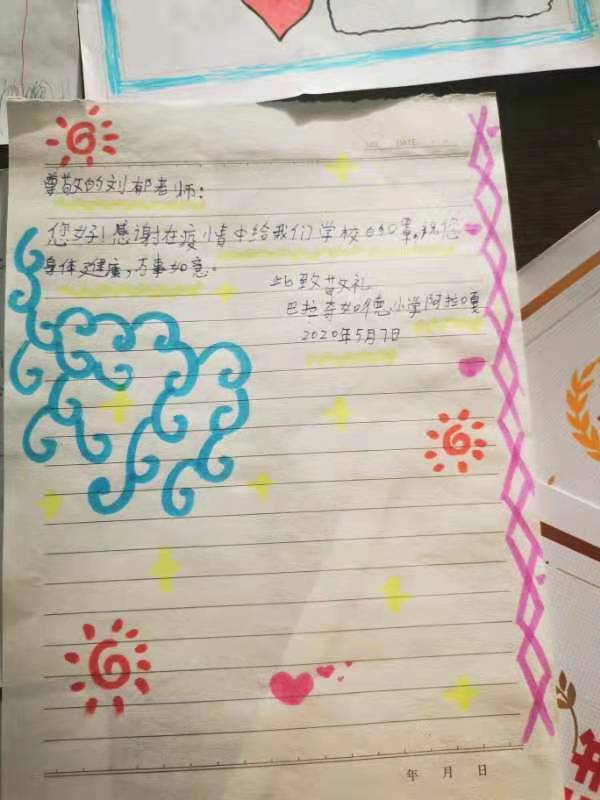 NO.    DATE
尊敬的刘郁老师:
您好!感谢在疫情中给我们学校的口罩,祝您
身体健康,万事如意。
此致敬礼
巴拉奇如德小学阿拉嘎
2020年5月7日
年 月 日